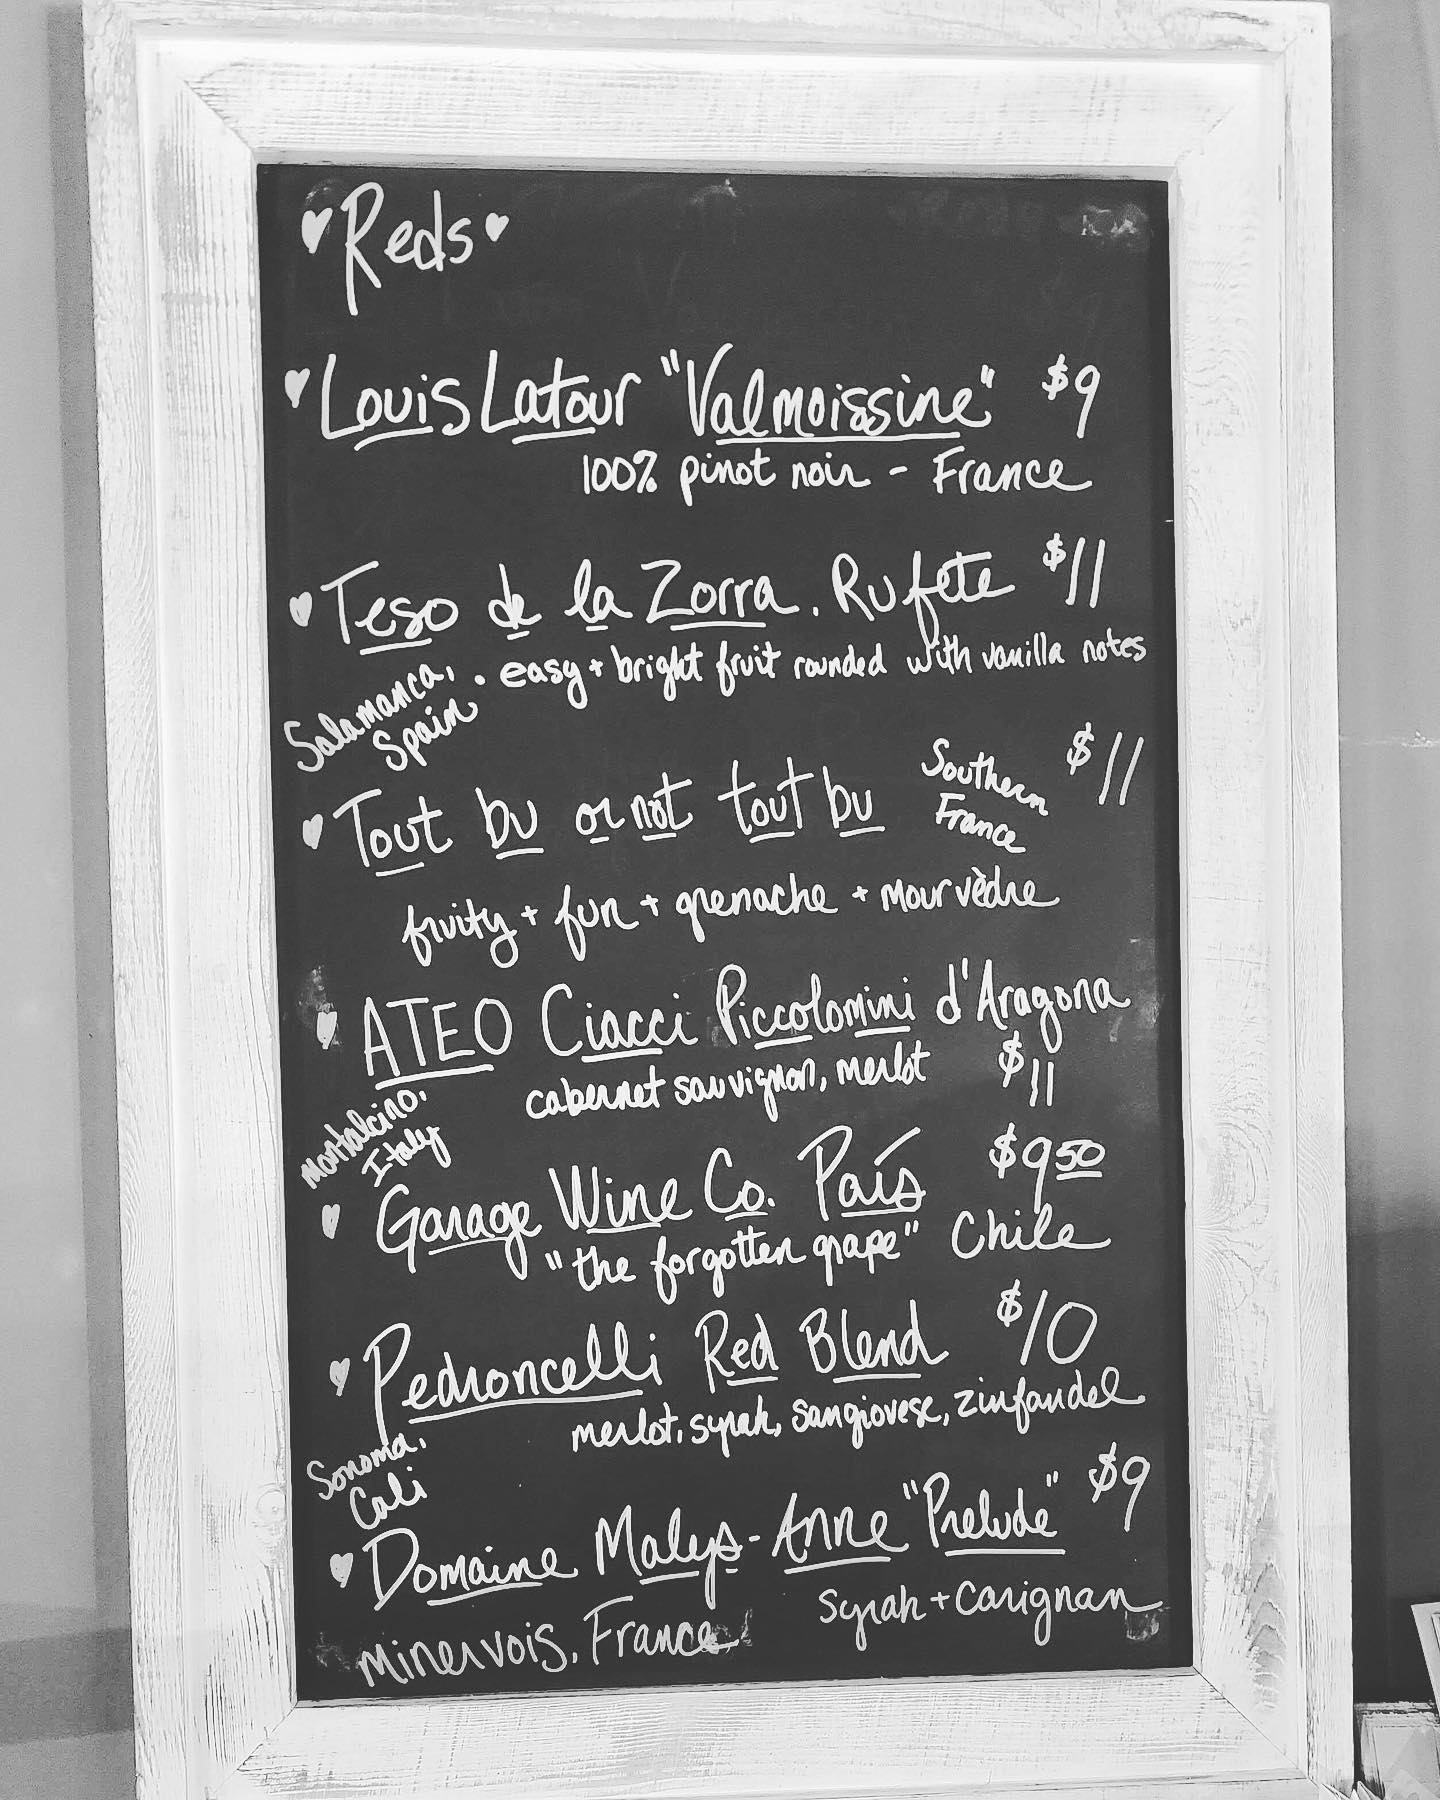 Reds
Louis Latour "Valmoissine" $9
100% pinot noir - France
Teso de la Zorra. Rufete $11
Salamanca,
Spain
• easy + bright fruit rounded with vanilla notes
Tout bu or not tout bu
Southern
France
$11
fruity + fun + grenache + mourvèdre
ATEO Ciacci Piccolomini d'Aragona
cabernet sauvignon, merlot $11
Montalcino,
Italy
Garage Wine Co. País $9 50
"the forgotten grape" Chile
Pedroncelli Red Blend $10
merlot, syrah, sangiovese, zinfandel
Sonoma,
Cali
Domaine Malys-Anne "Prelude" $9
Minervois, France syrah + Carignan